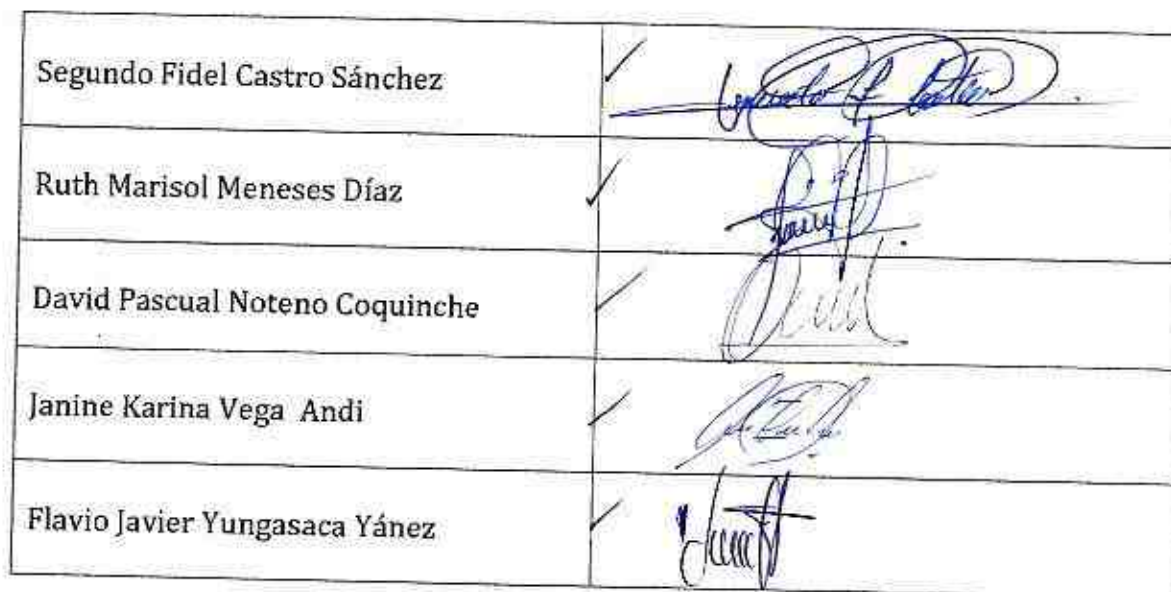 Segundo Fidel Castro Sánchez
Ruth Marisol Meneses Díaz
David Pascual Noteno Coquinche
Janine Karina Vega Andi
Flavio Javier Yungasaca Yánez